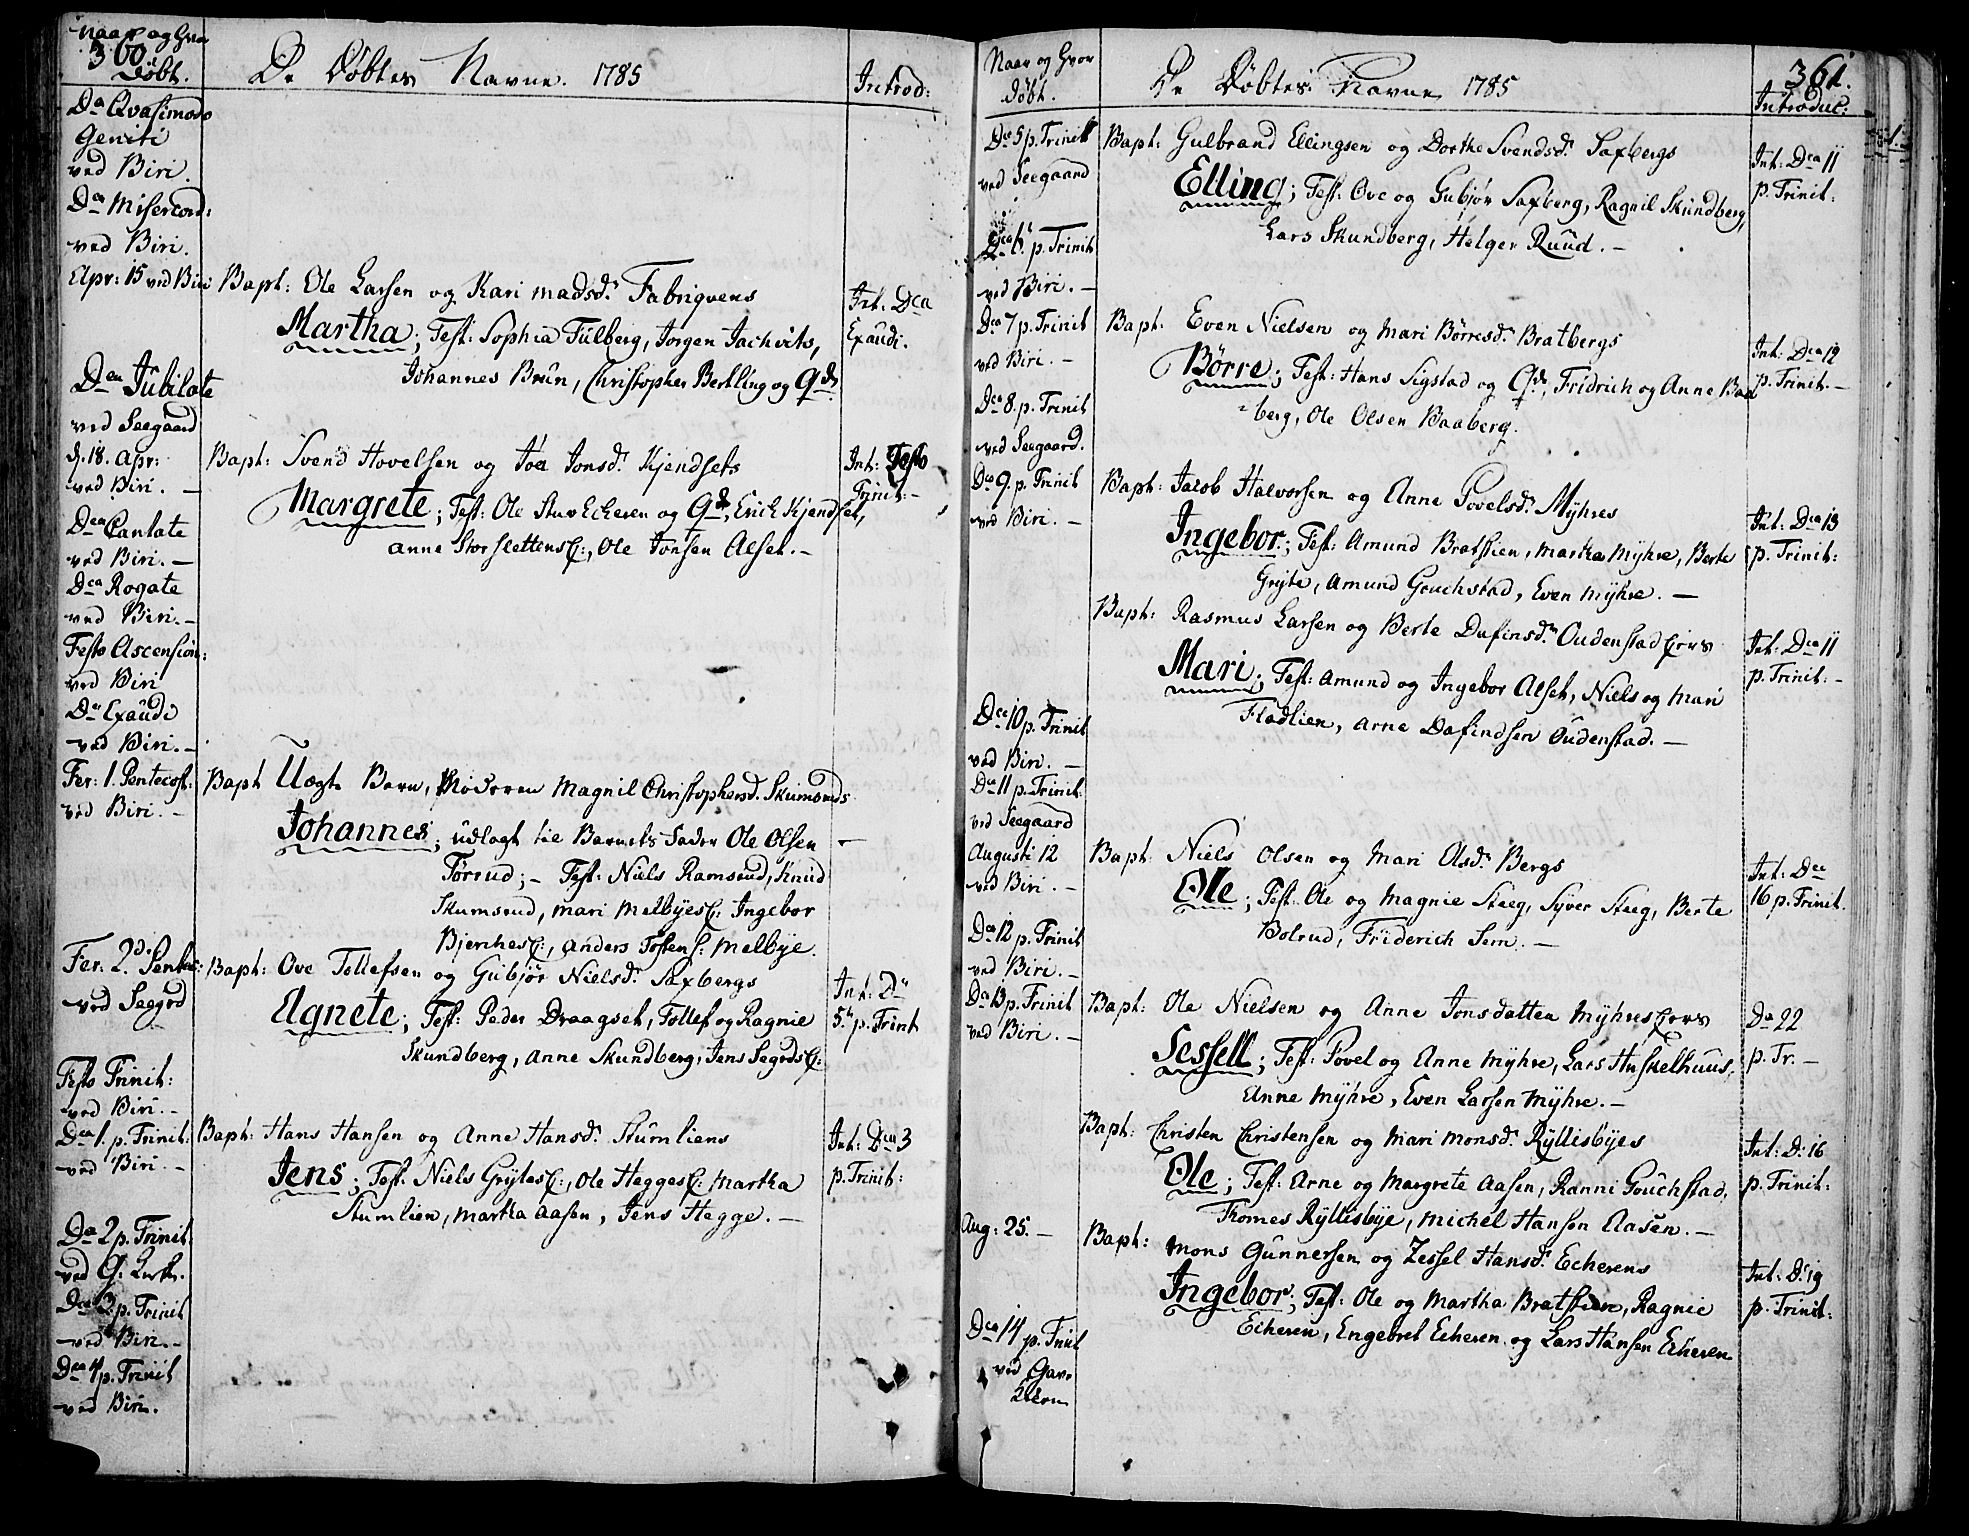 360.
Naar og Hvor
Døbt.
De Døbtes Navne. 1785
Introd:
Dca Qvasimodo
Geniti
ved Biri.
Dca Misericord:
ved Biri.
Apr: 15 ved Biri
Bapt: Ole Larsen og Kari Madsdr. Fabriqvens
Martha; Test: Sophia Fulberg, Jorgen Jachvits,
Johannes Brun, Christopher Bertling og Qd.
Int. Dca
Exaudi.
Dca Jubilate
ved Seegaard
d. 18. Apr:
ved Biri. —
Bapt: Svend Hovelsen og Joe Jonsdr. Kjendsets
Margrete; Test: Ole Stuvecheren og Qd, Erich Kjendset,
Anne Storslettens E:, Ole Jonsen Alset. —
Int: Festo
Trinit: —
Dca Cantate
ved Biri. —
Dca Rogate
ved Biri. —
Festo Ascension:
ved Biri
Dca Exaudi
ved Biri. —
Fer: 1. Pentecost:
ved Biri. —
Bapt Uægte Barn, Moderen Magnil Christophersd. Skumsruds
Johannes; udlagt til Barnets Fader Ole Olsen —
Torrud; — Test: Niels Ramsrud, Knud
Skumsrud, Mari Melbyes E: Ingebor
Bjerches E:, Anders Tostens: Melbye.
Fer: 2d. Pentec:
ved Seegrd
Bapt: Ove Tollefsen og Gubjør Nielsdr. Saxbergs
Agnete; Test: Peder Draagset, Tollef og Ragnie
Skundberg, Anne Skundberg, Jens Segrds E:
Int: Dca
5. p. Trinit
Festo Trinit:
ved Biri. —
Dca 1. p. Trinit.
ved Biri. —
Bapt: Hans Hansen og Anne Hansdr. Stumliens
Jens; Test: Niels Grytes E:, Ole Hegges E: Martha
Stumlien, Martha Aasen, Jens Hegge. —
Int: Dca 3
p. Trinit:
Dca 2 p. Trinit.
ved
Dca 3 p. Trinit
ved Biri. —
Dca 4 p. Trinit
ved Biri.
361.
Naar og Hvor
Døbt.
De Døbtes Navne 1785
Introduc:
Dca 5 p. Trinit
ved Seegaard
Bapt: Gulbrand Ellingsen og Dorthe Svendsdr. Saxbergs
Elling; Test: Ove og Gubjør Saxberg, Ragnil Skundberg,
Lars Skundberg, Helger Ruud. —
Int: Dca 11
p. Trinit:
Dca 6. p. Trinit
ved Biri. —
Dca 7 p. Trinit
ved Biri. —
Bapt. Even Nielsen og Mari Børresdr. Bratbergs
Børre; Test: Hans Sigstad og Qd:, Fridrich og Anne Baa
=berg, Ole Olsen Baaberg.
Int: Dca 12
p. Trinit. —
Dca 8. p. Trinit
ved Seegaard.
Dca 9. p. Trinit
ved Biri. —
Bapt: Jacob Halvorsen og Anne Povelsdr. Myhres
Ingebor; Test: Amund Bratstien, Martha Myhre, Berte
Gryte, Amund Gouchstad, Even Myhre. —
Int: Dca 13
p. Trinit:
Bapt: Rasmus Larsen og Berte Dafinsdr. Oudenstad Eors
Mari; Test: Amund og Ingebor Alset, Niels og Mari
Fladlien, Arne Dafindsen Oudenstad. —
Int: Dca 11
p. Trinit: —
Dca 10 p. Trinit
ved Biri. —
Dca 11 p. Trinit:
ved Seegaard
Augusti 12
ved Biri. —
Bapt: Niels Olsen og Mari Olsdr. Bergs
Ole; Test: Ole og Magnie Steeg, Syver Steeg, Berte
Bolrud, Friderich Sem. —
Int: Dca
16 p. Trinit.
Dca 12 p. Trinit
ved Biri. —
Dca 13 p. Trinit
ved Biri. —
Bapt: Ole Nielsen og Anne Jonsdatter Myhres Eors
Sessell; Test: Povel og Anne Myhre, Lars Huskelhuus,
Anne Myhre, Even Larsen Myhre. —
Dca 22
p. Tr. —
Bapt: Christen Christensen og Mari Monsdr. Ryllisbyes
Ole; Test: Arne og Margrete Aasen, Ranni Gouchstad,
Thomes Ryllisbye, Michel Hansen Aasen. —
Int: D: 16
p. Trinit:
Aug: 25. —
Bapt: Mons Gunnersen og Zessel Hansdr. Echerens
Ingebor; Test: Ole og Martha Bratstien, Ragnie
Echeren, Engebret Echeren og Lars Hansen Echeren
Int: D: 19
p. Trinit:
Dca 14 p. Trinit
ved